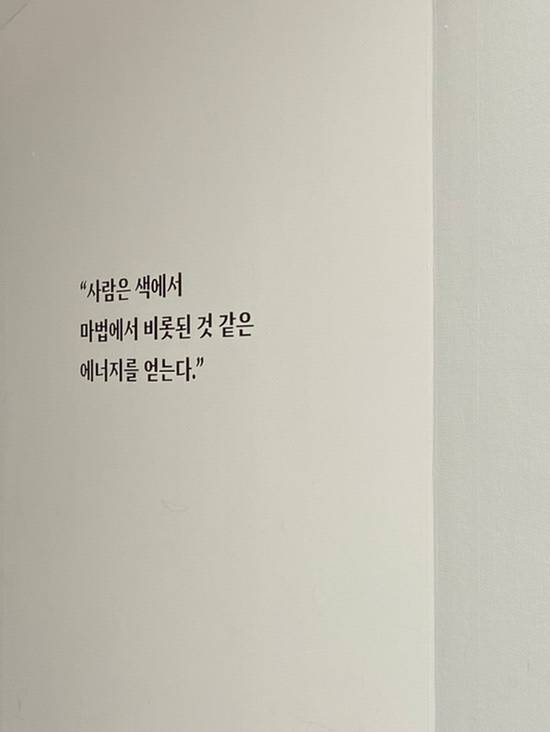 “사람은 색에서
마법에서 비롯된 것 같은
에너지를 얻는다.”